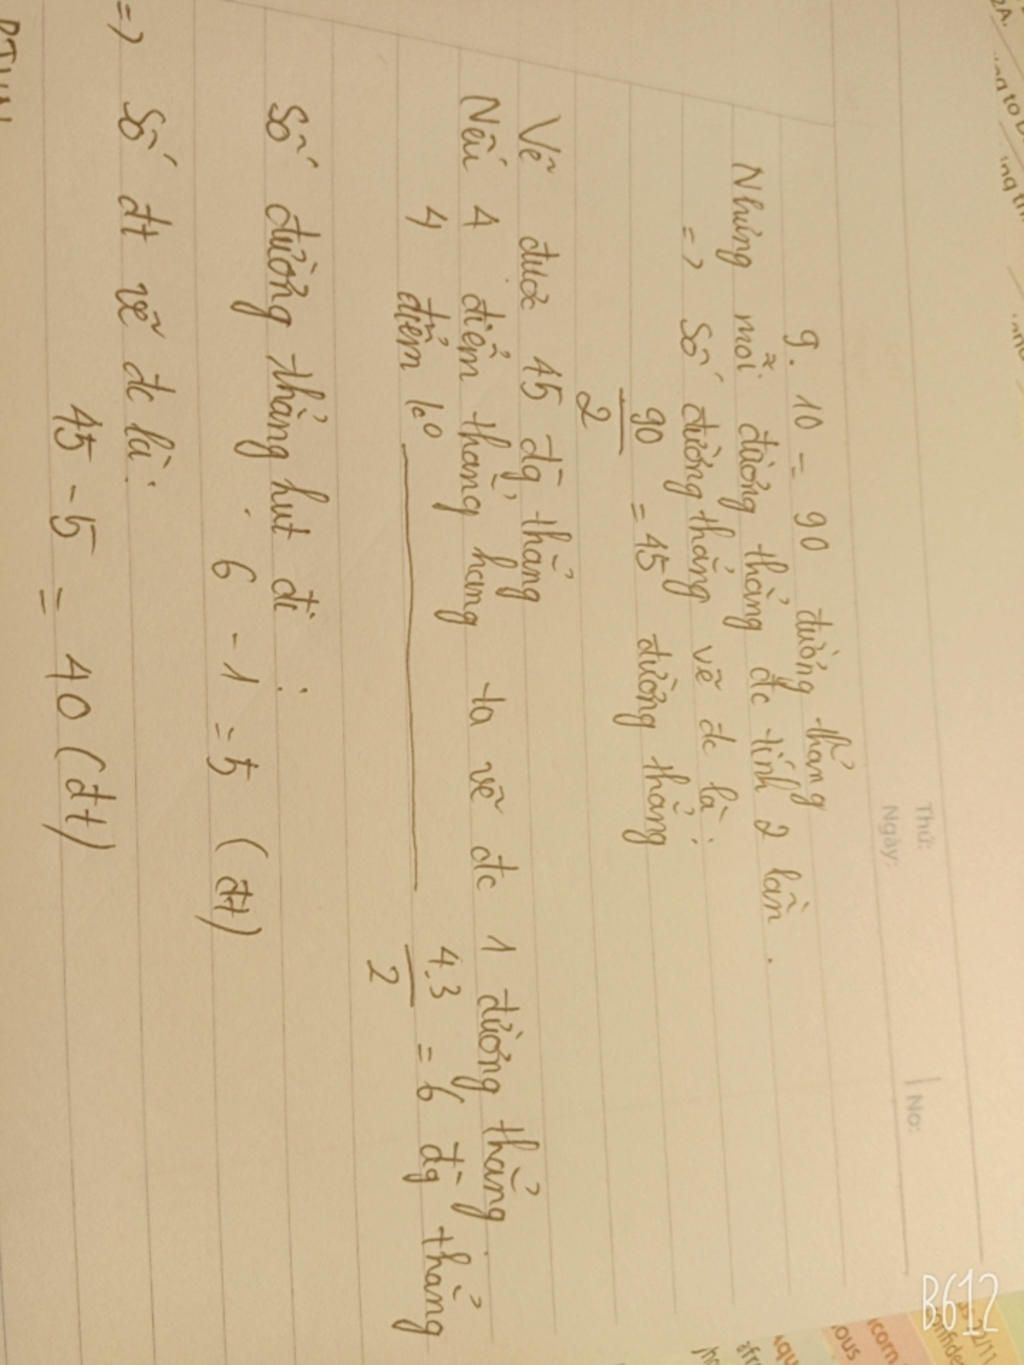 Thứ:
Ngày:
No:
9. 10 = 90 đường thẳng
Nhưng mỗi đường thẳng đc tính 2 lần.
=> Số đường thẳng vẽ đc là:
90/2 = 45 đường thẳng
Vẽ được 45 đg thẳng
Nếu 4 điểm thẳng hàng ta vẽ đc 1 đường thẳng
4 điểm ko ______ 4.3/2 = 6 đg thẳng
Số đường thẳng hụt đi:
6 - 1 = 5 (đt)
=> Số đt vẽ đc là:
45 - 5 = 40 (đt)
B612